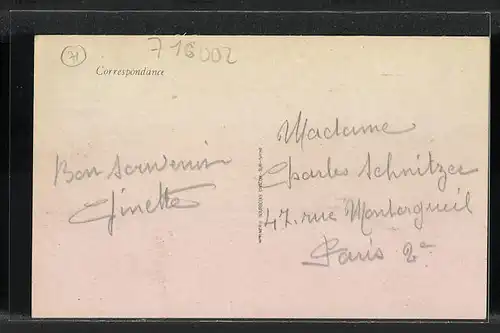 71
716002
Correspondance
Bon souvenir
Ginette
Madame
Charles Schnitzer
47. rue Montorgueil
Paris 2e